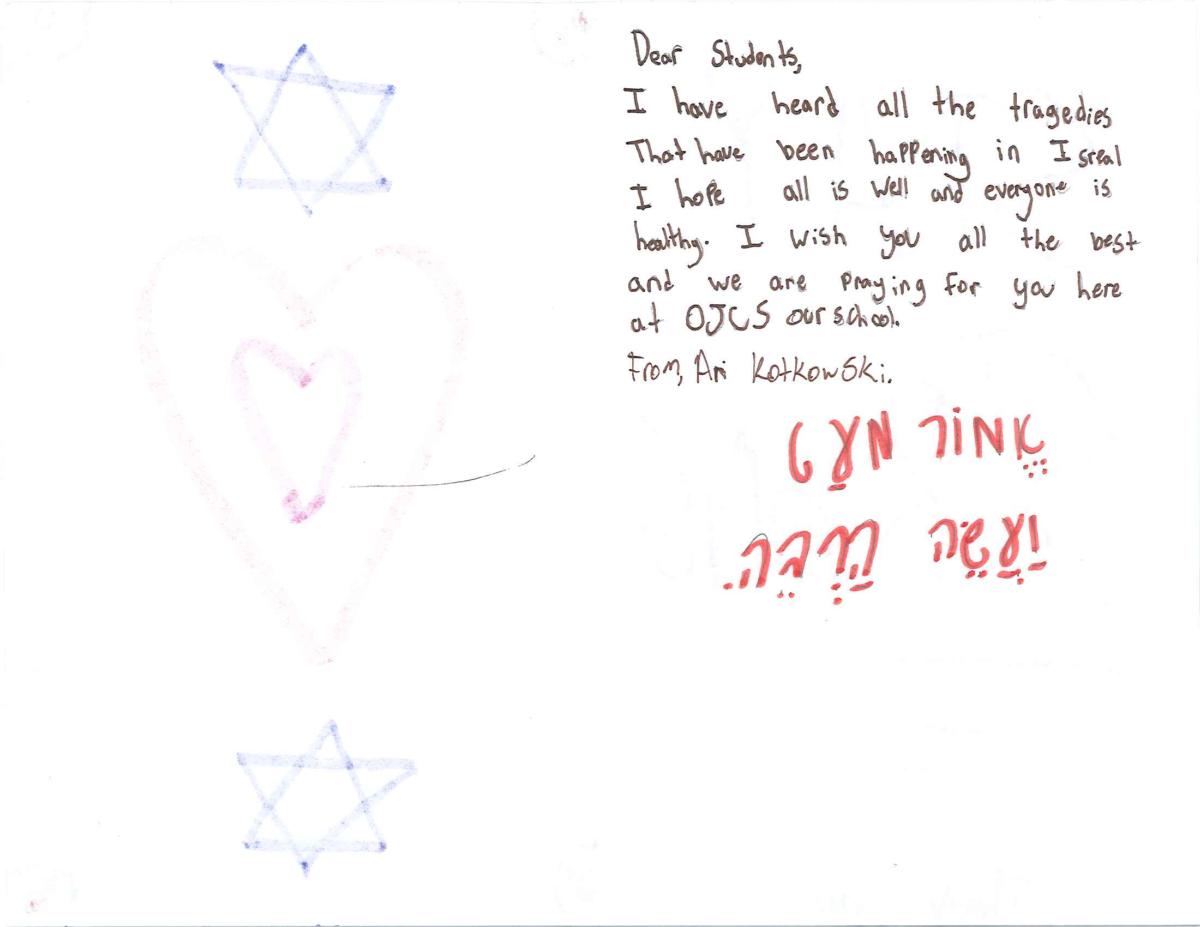 Dear Students,
I have heard all the tragedies
That have been happening in Isreal
I hope all is well and everyone is
healthy. I wish you all the best
and we are praying for you here
at OJCS our school.
From, Ari Kotkowski.
אֱמוֹר מְעַט
וַעֲשֵׂה הַרְבֵּה.